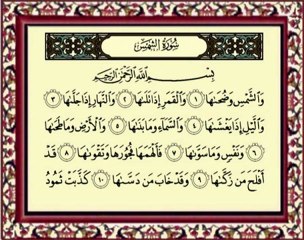 سُورَةُ الشَّمْسِ
بِسْمِ اللَّهِ الرَّحْمَٰنِ الرَّحِيمِ
وَالشَّمْسِ وَضُحَاهَا ١ وَالْقَمَرِ إِذَا تَلَاهَا ٢ وَالنَّهَارِ إِذَا جَلَّاهَا ٣
وَاللَّيْلِ إِذَا يَغْشَاهَا ٤ وَالسَّمَاءِ وَمَا بَنَاهَا ٥ وَالْأَرْضِ وَمَا طَحَاهَا
٦ وَنَفْسٍ وَمَا سَوَّاهَا ٧ فَأَلْهَمَهَا فُجُورَهَا وَتَقْوَاهَا ٨ قَدْ
أَفْلَحَ مَن زَكَّاهَا ٩ وَقَدْ خَابَ مَن دَسَّاهَا ١٠ كَذَّبَتْ ثَمُودُ